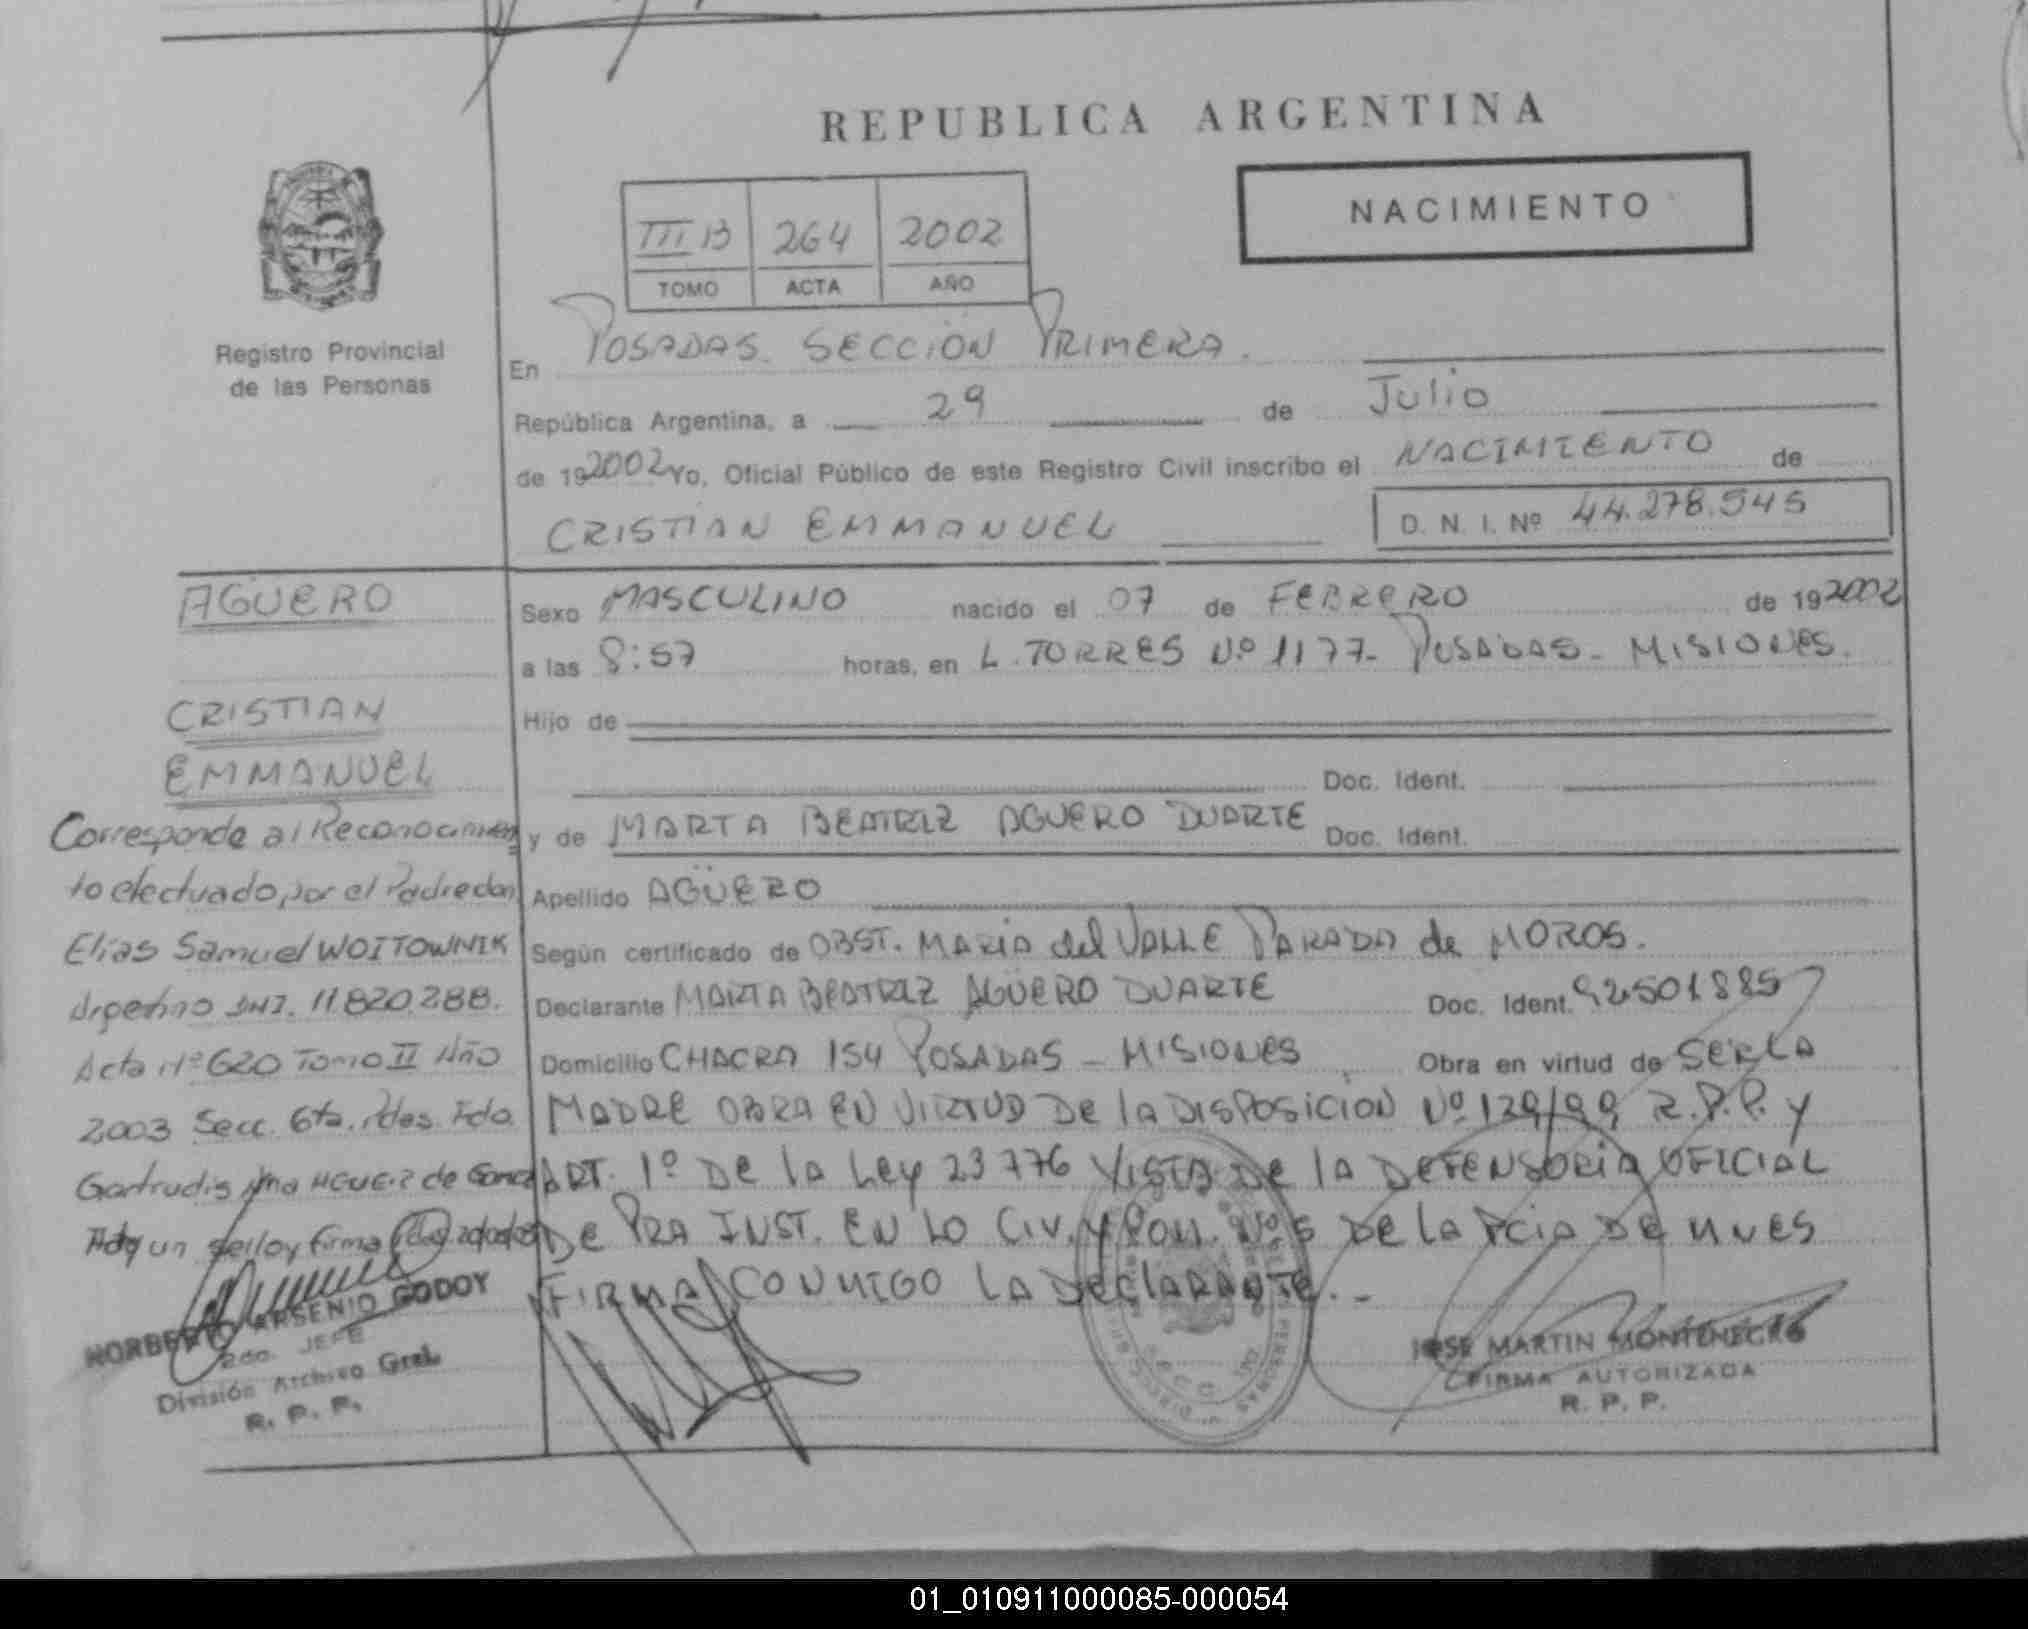 REPUBLICA ARGENTINA
NACIMIENTO
III B 264 2002
TOMO ACTA AÑO
Registro Provincial
de las Personas
En POSADAS. SECCION PRIMERA.
República Argentina, a 29 de Julio
de 192002 Yo, Oficial Público de este Registro Civil inscribo el NACIMIENTO de
CRISTIAN EMMANUEL D. N. I. Nº 44.278.545
AGÜERO
CRISTIAN
EMMANUEL
Corresponde al Reconocimien
to efectuado por el Padre don
Elias Samuel WOITOWNIK
Argentino DNI. 11.820.288.
Acta Nº 620 Tomo II Año
2003 Secc. 6ta. Pdas. Fdo.
un sello y firma
NORBERTO ARSENIO GODOY
2do. JEFE
División Archivo Gral.
R. P. P.
Sexo MASCULINO nacido el 07 de FEBRERO de 192002
a las 8:57 horas, en L. TORRES Nº 1177- POSADAS - MISIONES.
Hijo de
Doc. Ident.
y de MARTA BEATRIZ AGUERO DUARTE Doc. Ident.
Apellido AGÜERO
Según certificado de OBST. MARIA del VALLE PARADA de MOROS.
Declarante MARTA BEATRIZ AGÜERO DUARTE Doc. Ident. 92501885
Domicilio CHACRA 154 POSADAS - MISIONES Obra en virtud de SER LA
MADRE OBRA EN VIRTUD DE la DISPOSICION Nº 129/99 R.P.P. y
ART. 1º DE la Ley 23776 VISTA DE la DEFENSORIA OFICIAL
DE PRA INST. EN LO CIV. Y COM. Nº 5 DE LA PCIA DE MNES
FIRMA CONMIGO LA DECLARANTE.-
JOSE MARTIN MONTENEGRO
FIRMA AUTORIZADA
R. P. P.
01_010911000085-000054